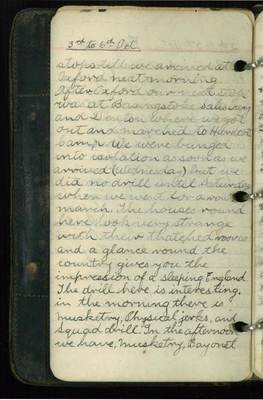 3rd to 6th Oct.
stops till we arrived at
Oxford next morning.
After Oxford our next stop
was at Basingstoke Salisbury
and Dinton where we got
out and marched to Hurdcott
Camp. We were bunged
into isolation as soon as we
arrived (Wednesday) but we
did no drill until Saturday
when we went for a route
march. The houses round
here look very strange
with their thatched rooves
and a glance round the
country gives you the
impression of a sleeping England
The drill here is interesting.
in the morning there is
Musketry, Physical jerks, and
Squad drill. In the afternoon
we have, Musketry, Bayonet